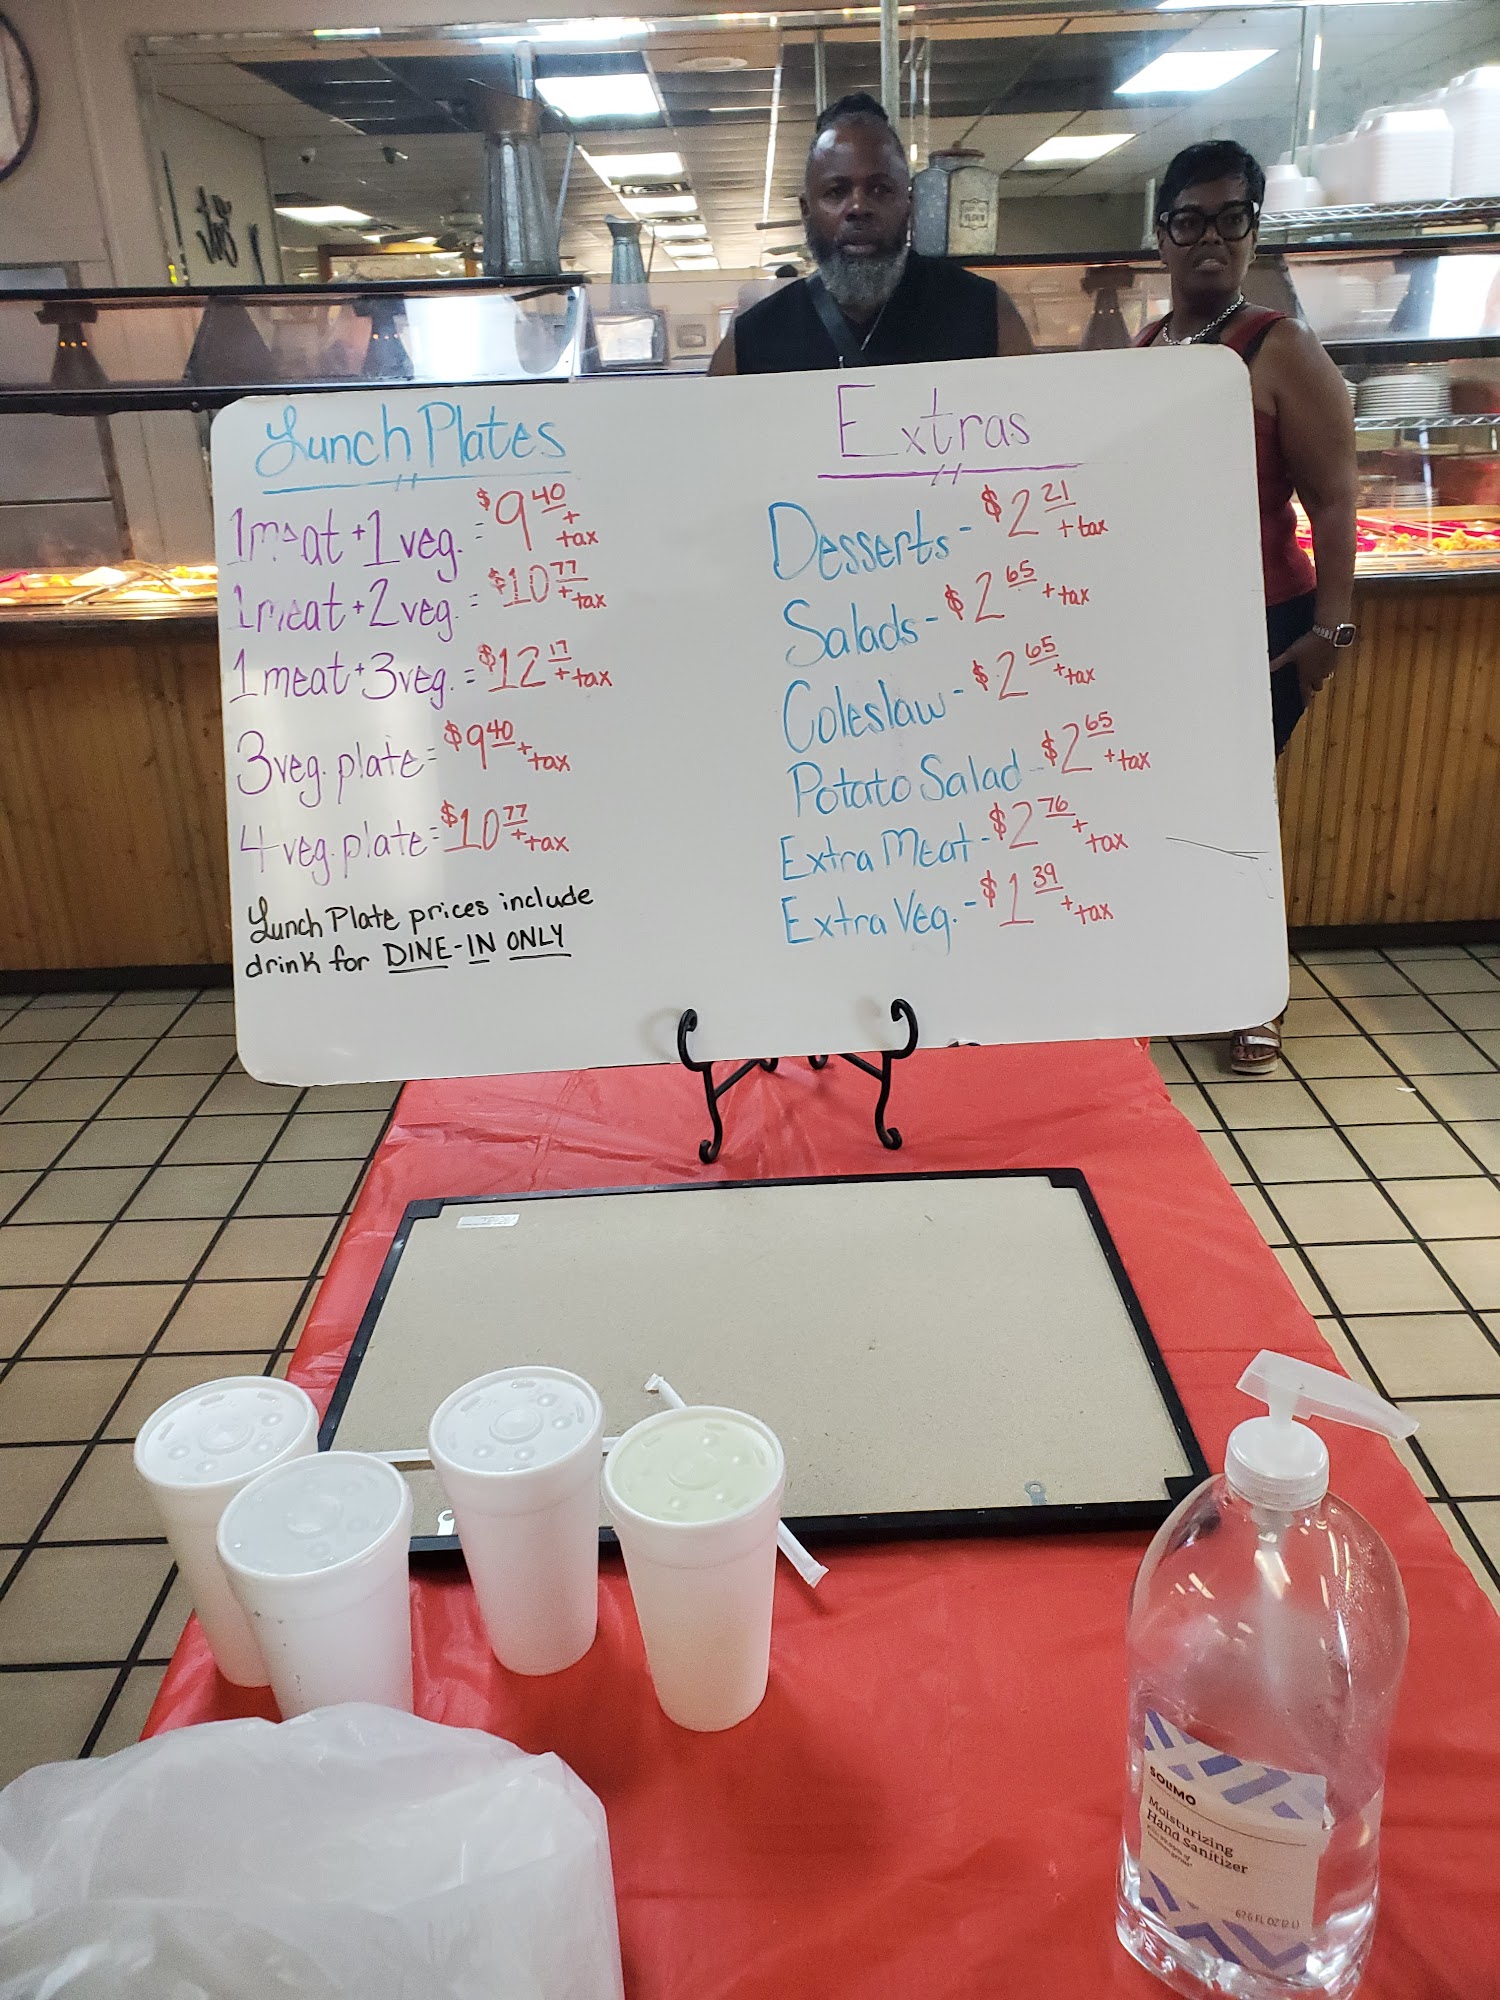 Lunch Plates
1 meat + 1 veg. = $9 40 + tax
1 meat + 2 veg. = $10 77 + tax
1 meat + 3 veg. = $12 17 + tax
3 veg. plate = $9 40 + tax
4 veg. plate = $10 77 + tax
Lunch Plate prices include
drink for DINE-IN ONLY
Extras
Desserts - $2 21 + tax
Salads - $2 65 + tax
Coleslaw - $2 65 + tax
Potato Salad - $2 65 + tax
Extra Meat - $2 76 + tax
Extra Veg. - $1 39 + tax
SOLIMO
Moisturizing
Hand Sanitizer
67.6 FL OZ (2 L)